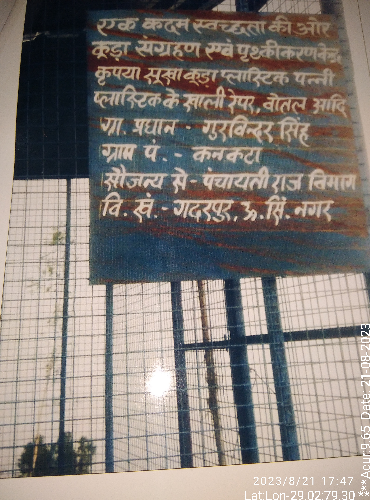 एक कदम स्वच्छता की ओर
कूड़ा संग्रहण एवं पृथ्कीकरण केन्द्र
कृपया सूखा कूड़ा प्लास्टिक पन्नी
प्लास्टिक के खाली रैपर, बोतल आदि
ग्रा. प्रधान - गुरविन्दर सिंह
ग्राम पं. - कनकटा
सौजन्य से - पंचायती राज विभाग
वि. खं. - गदरपुर, ऊ. सिं. नगर
2023/8/21 17:47
LatLon-29.02:79.30
***Acur:9.65 Date:21-08-2023